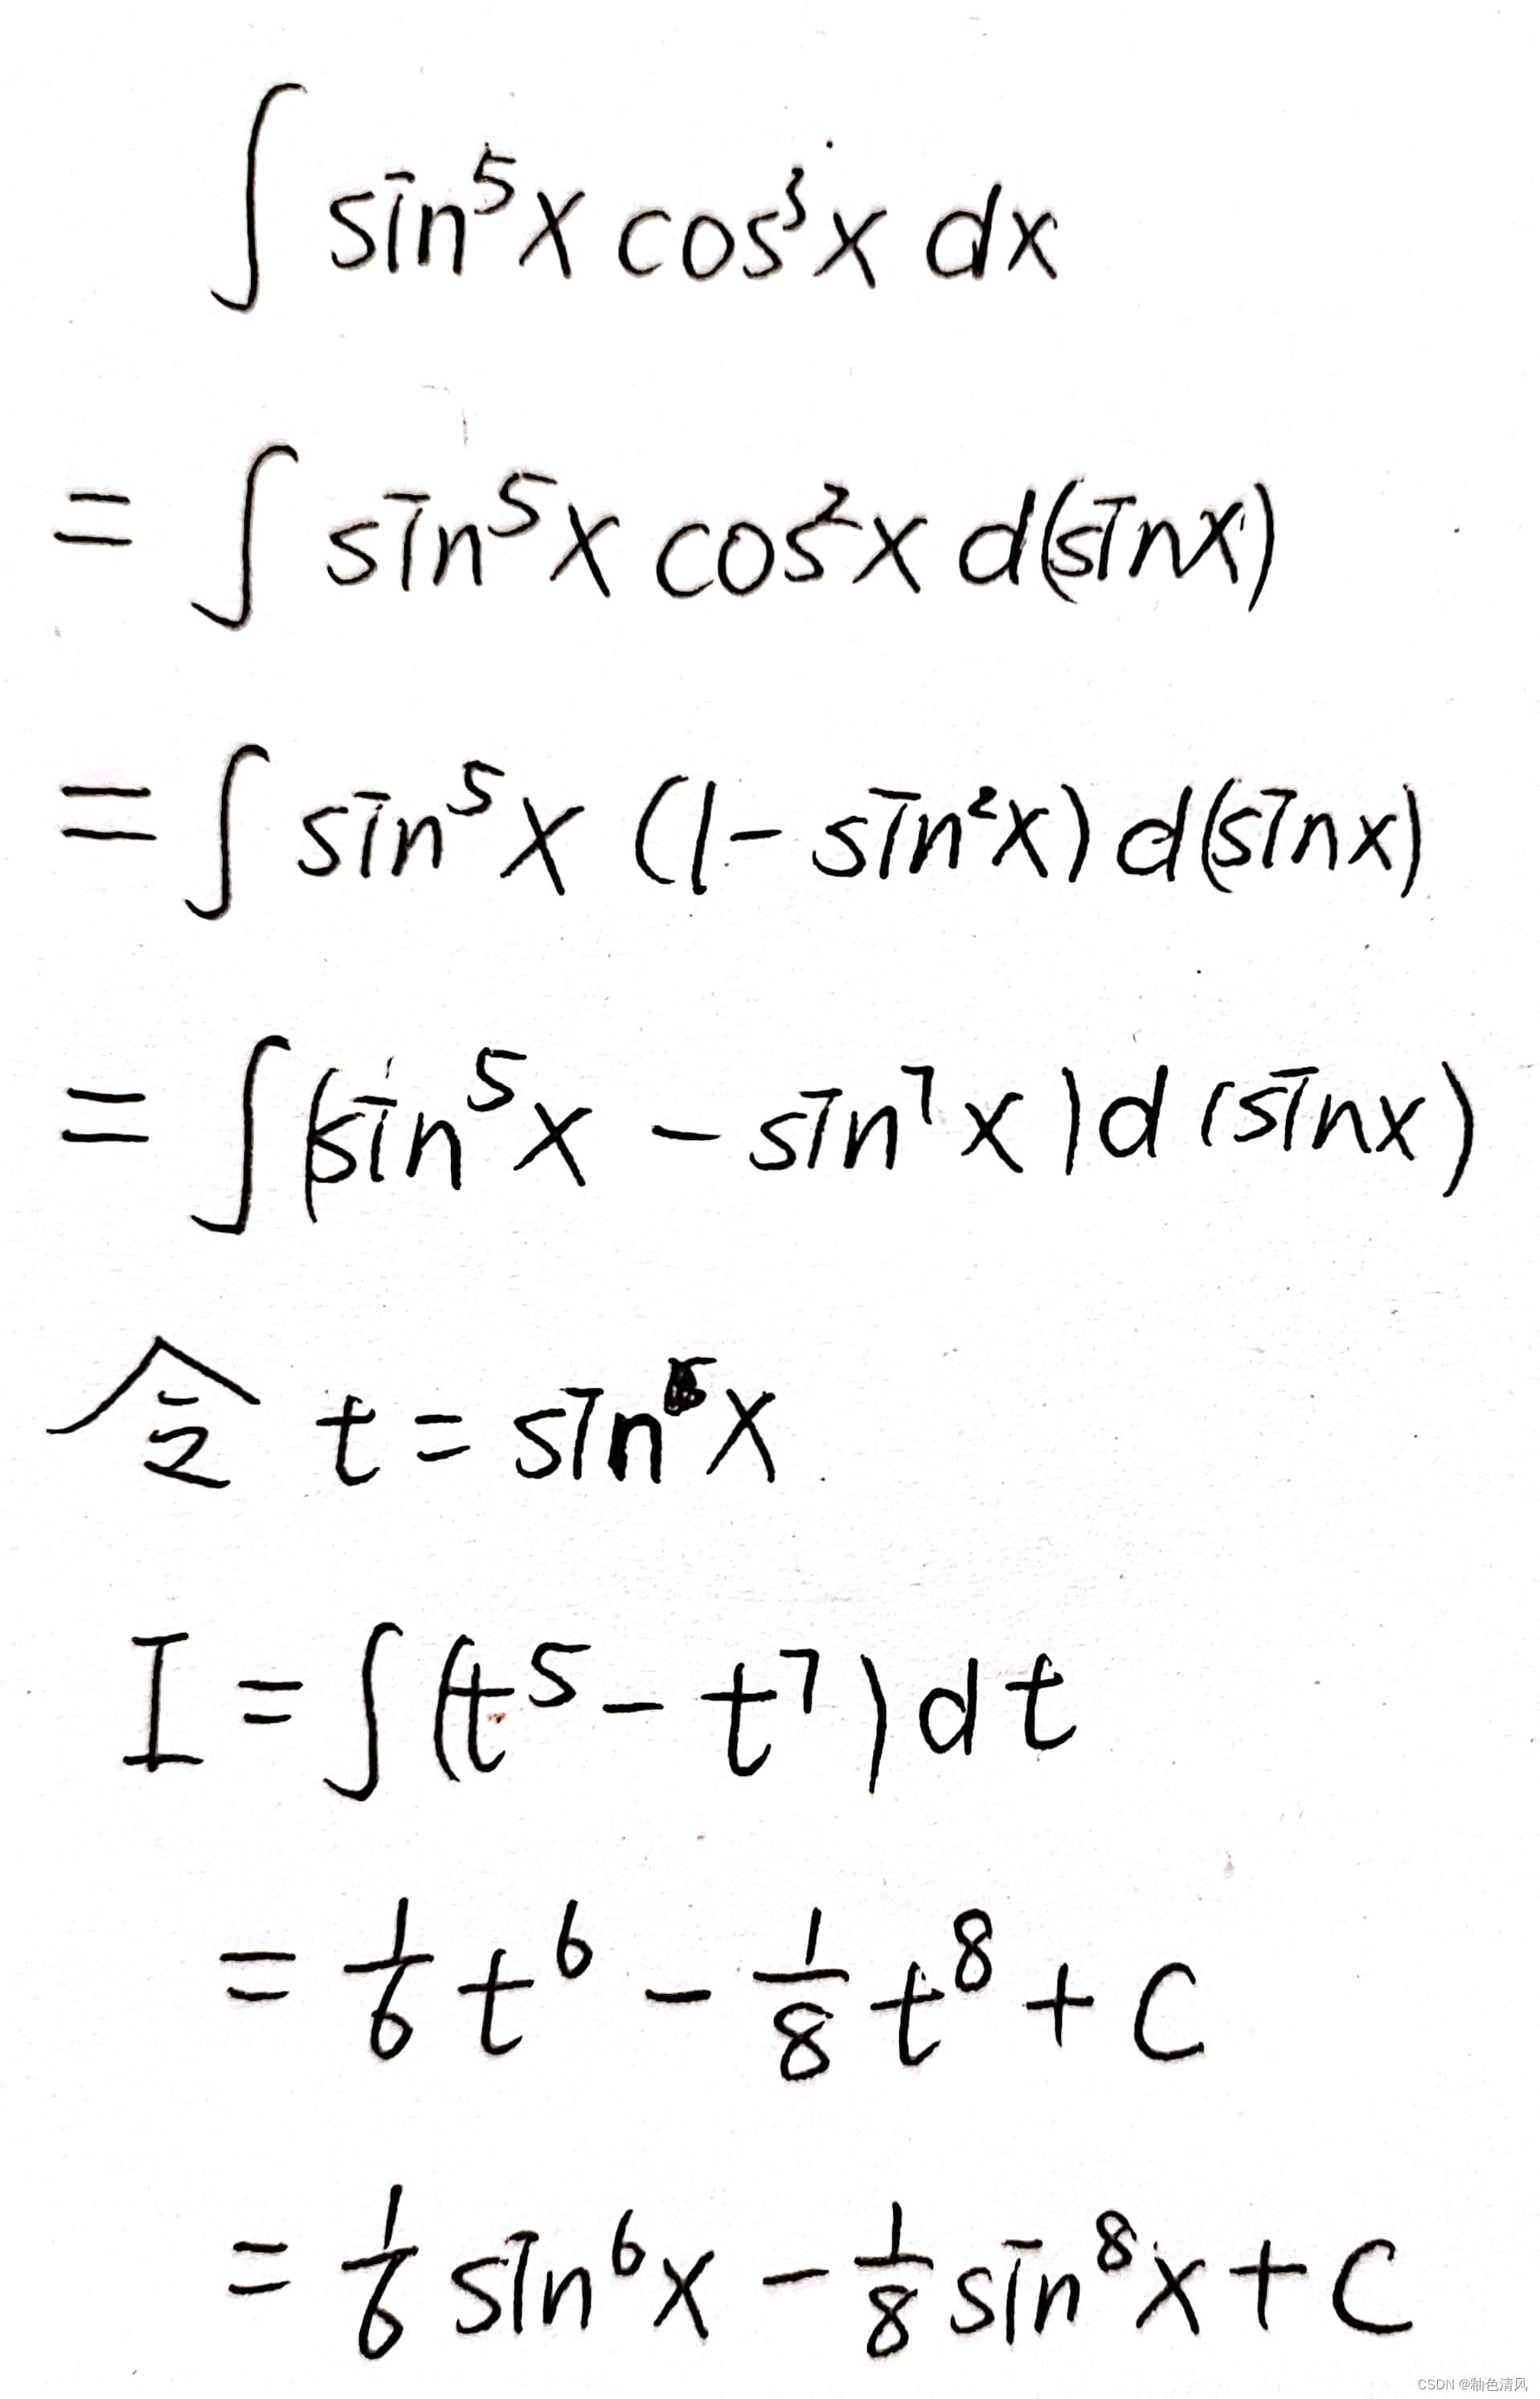 ∫ sin⁵x cos³x dx
= ∫ sin⁵x cos²x d(sinx)
= ∫ sin⁵x (1 - sin²x) d(sinx)
= ∫ (sin⁵x - sin⁷x) d(sinx)
令 t = sin x
I = ∫ (t⁵ - t⁷) dt
= 1/6 t⁶ - 1/8 t⁸ + C
= 1/6 sin⁶x - 1/8 sin⁸x + C
CSDN @釉色清风